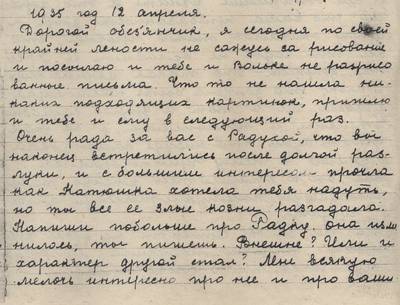 1935 год 12 апреля.
Дорогой обезянчик, я сегодня по своей
крайней лености не сажусь за рисование
и посылаю и тебе и Вольке не разрисо
ванные письма. Что то не нашла ни-
каких подходящих картинок, пришлю
и тебе и ему в следующий раз.
Очень рада за вас с Радухой, что вы
наконец встретились после долгой раз-
луки, и с большим интересом прочла
как Катюшка хотела тебя надуть,
но ты все ее злые козни разгадала.
Напиши побольше про Радку, она изме
нилось, ты пишешь. Внешне? Или и
характер другой стал? Мне всякую
мелочь интересно про нее и про ваши